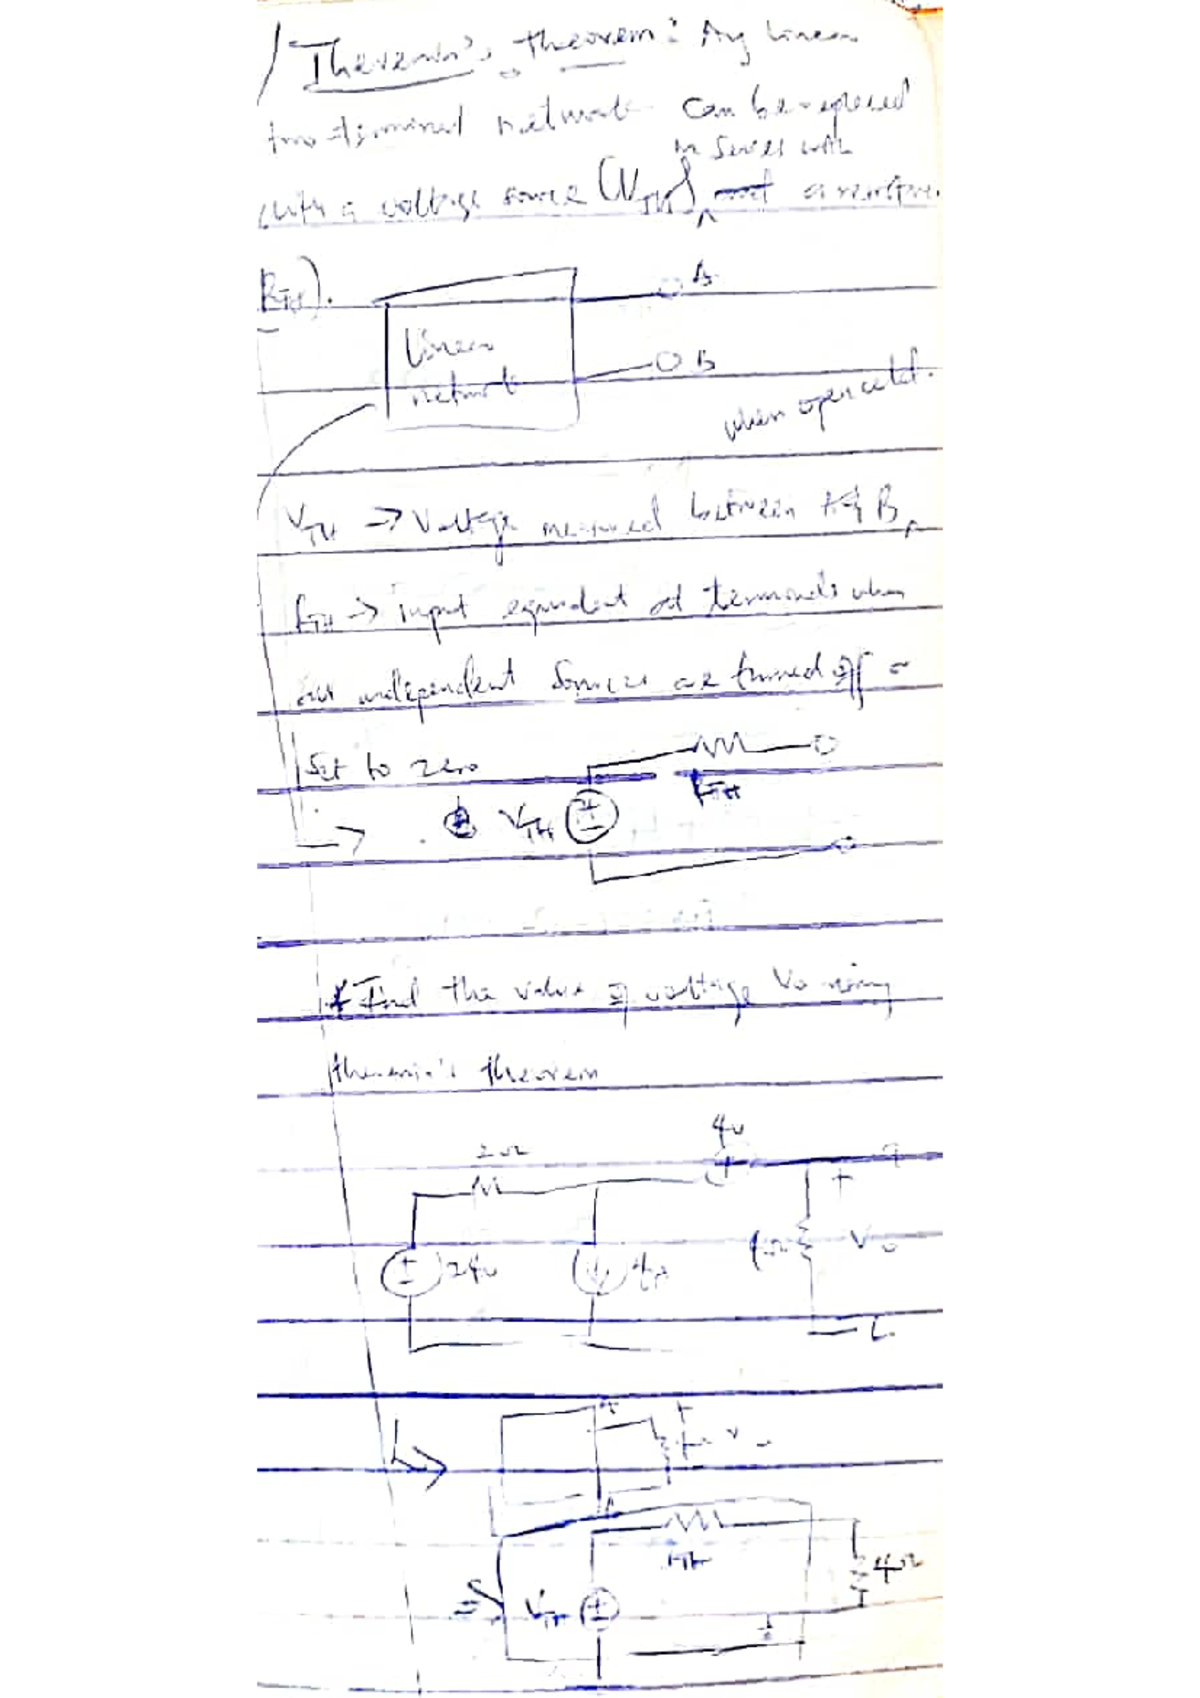 Thevenin's theorem: Any linear
two terminal network can be replaced
in series with
with a voltage source (VTH) and a resistive
RTH).
A
Linear
network
B
when open cct.
VTH → Voltage measured between A & B
RTH → input equivalent at terminals when
all independent sources are turned off or
Set to zero
RTH
VTH
* Find the value of voltage Vo using
thevenin's theorem
4v
2Ω
+
24v
4A
Vo
A
+
VTH
4Ω